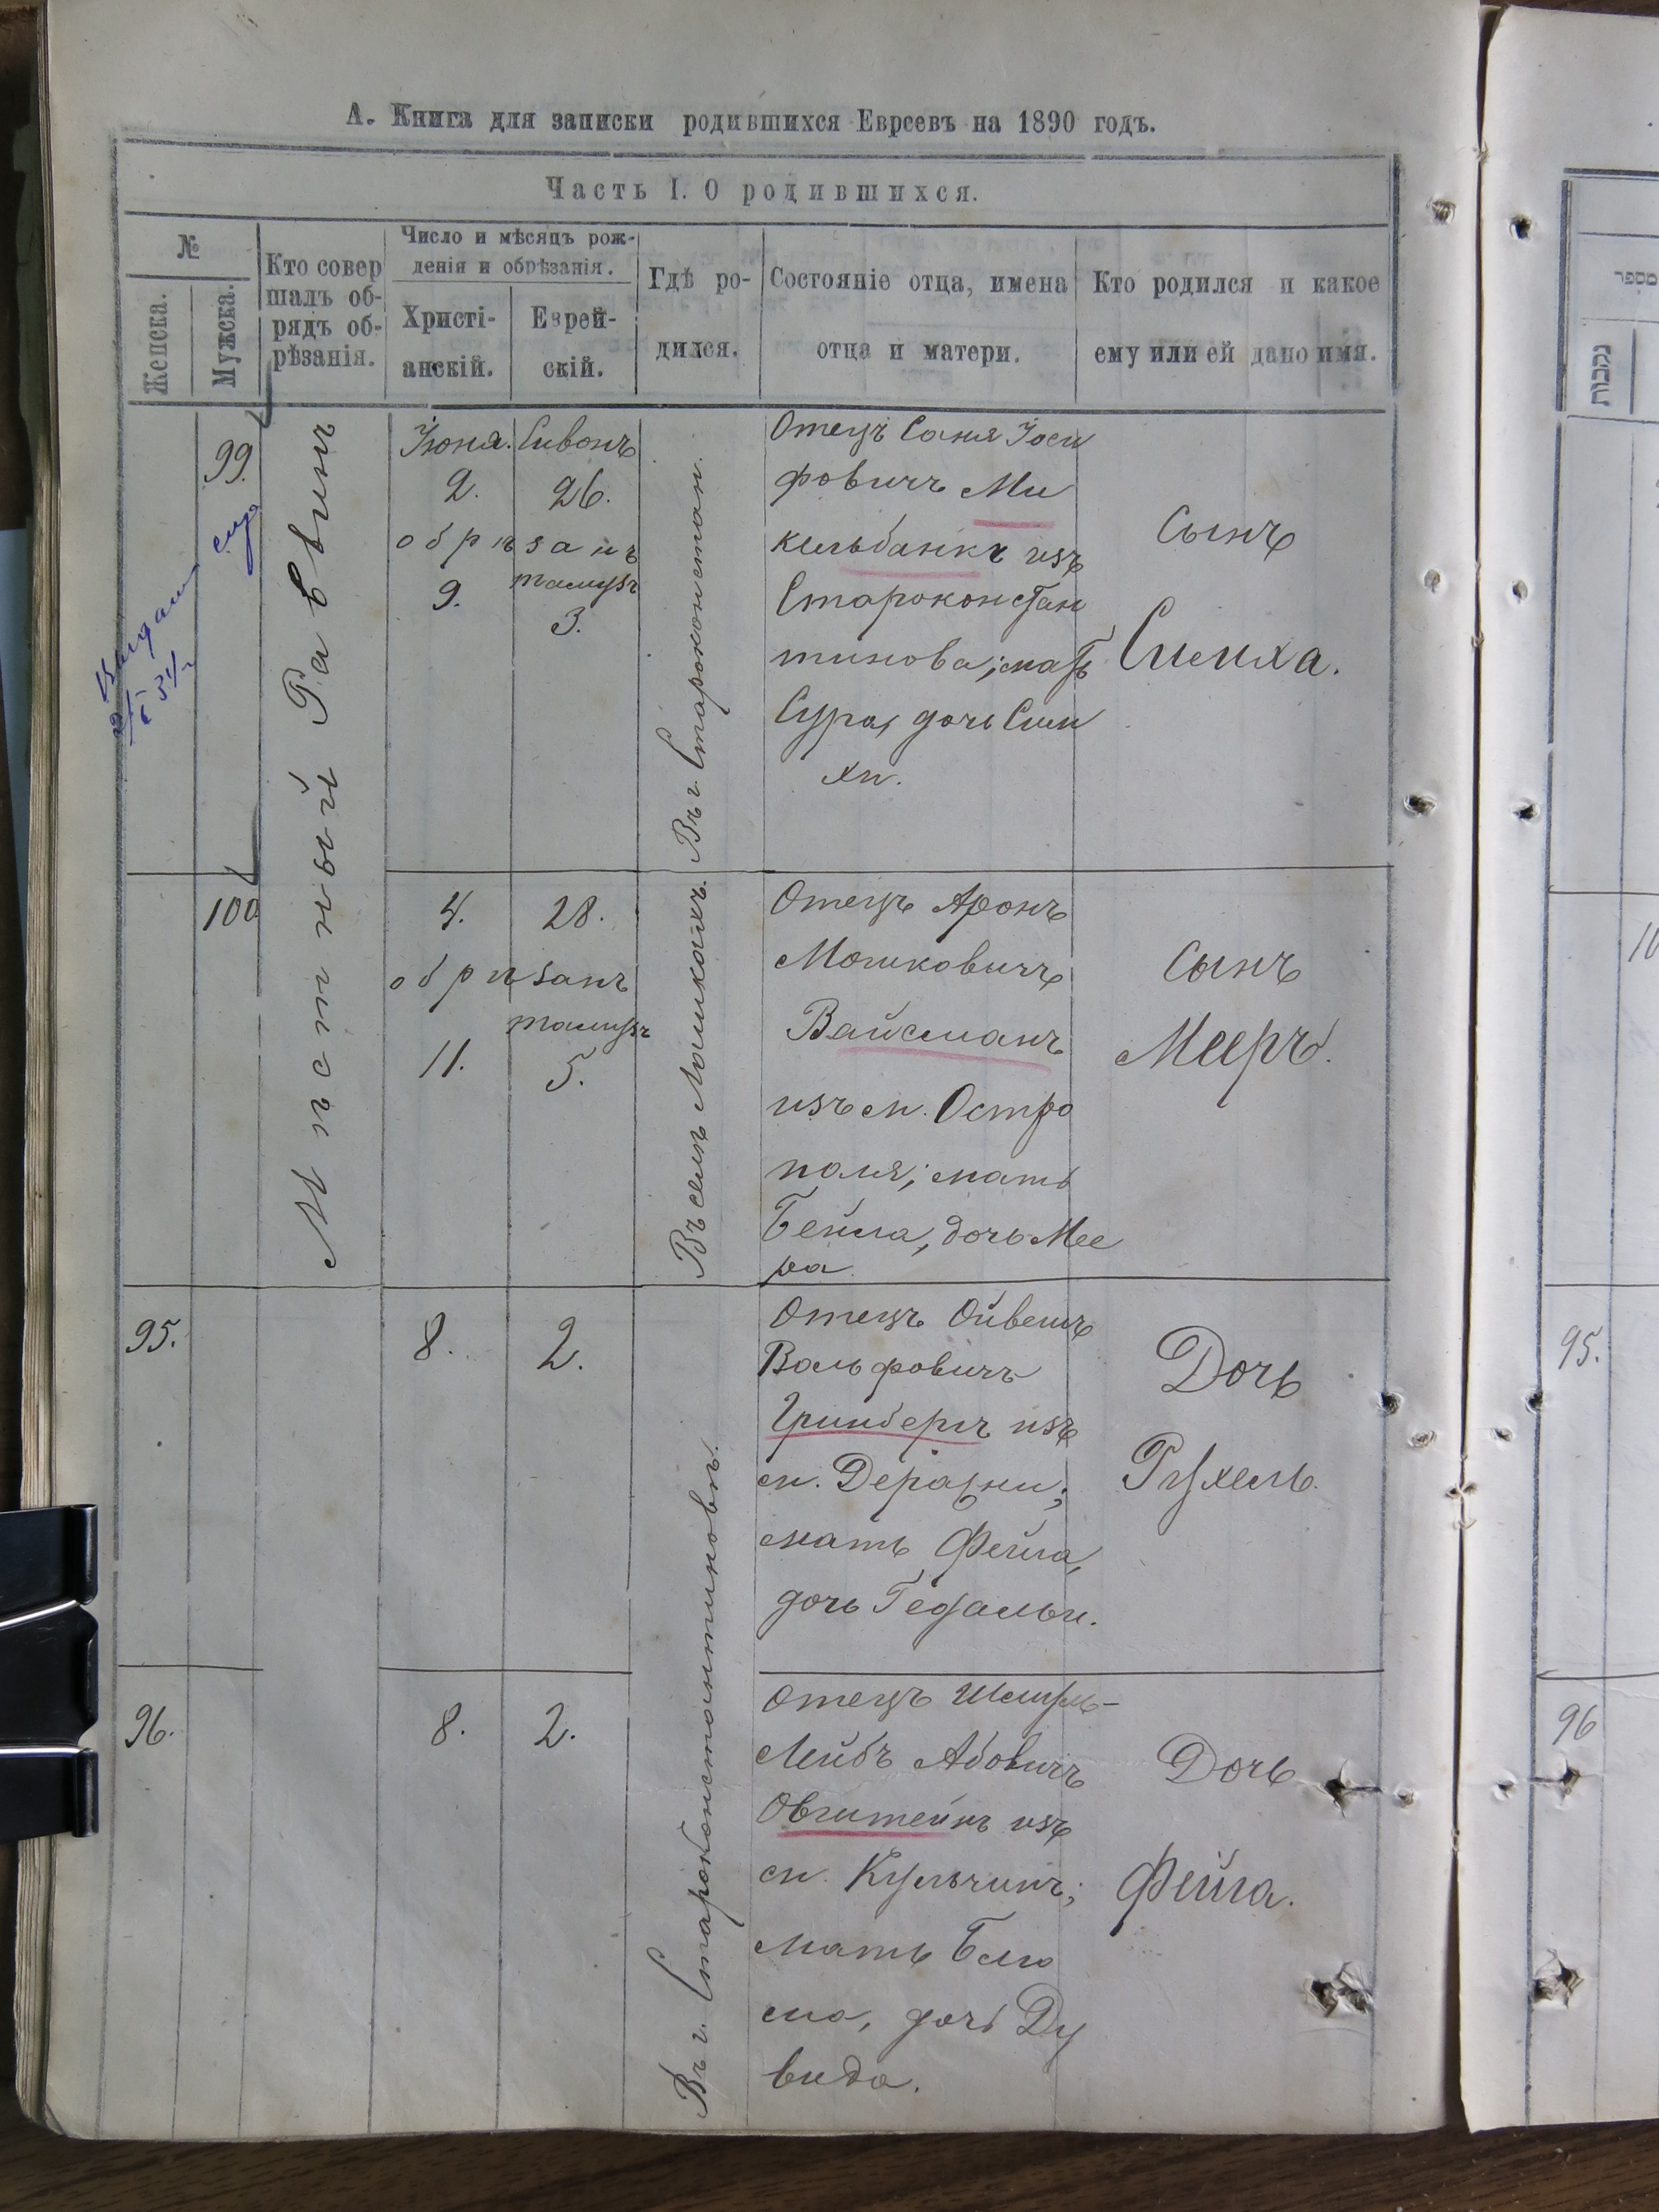 А. Книга для записки родившихся Евреевъ на 1890 годъ.
Часть I. О родившихся.
№
Женска.
Мужска.
Кто совер
шалъ об-
рядъ об-
рѣзанія.
Число и мѣсяцъ рож-
денія и обрѣзанія.
Христі-
анскій.
Еврей-
скій.
Гдѣ ро-
дился.
Состояніе отца, имена
отца и матери.
Кто родился и какое
ему или ей дано имя.
99.
Мѣстный Раввинъ
Іюня. Сивонъ
2. 26.
обрѣзанъ
9. тамузъ
3.
Въ г. Староконстан.
Отецъ Саня Іоси
фовичъ Ми
кельбанкъ изъ
Староконстан
тинова; мать
Сура, дочь Сим
хи.
Сынъ
Симха.
100
4. 28.
обрѣзанъ
тамузъ
11. 5.
Въ селѣ
Отецъ Аронъ
Мошковичъ
Вайсманъ
изъ м. Остро
поля; мать
Бейла, дочь Мее
ра
Сынъ
Мееръ.
95.
8. 2.
Въ г. Староконстантиновѣ.
Отецъ Ойвешъ
Вольфовичъ
Гринбергъ изъ
м. Деражни;
мать Фейга,
дочь Гедальи.
Дочь
Рухель.
96.
8. 2.
Отецъ Шмуль-
Лейбъ Абовичъ
изъ
м. Кульчинъ;
мать Блю
ма, дочь Ду
вида.
Дочь
Фейга.
מספר
נקבות
10
95.
96